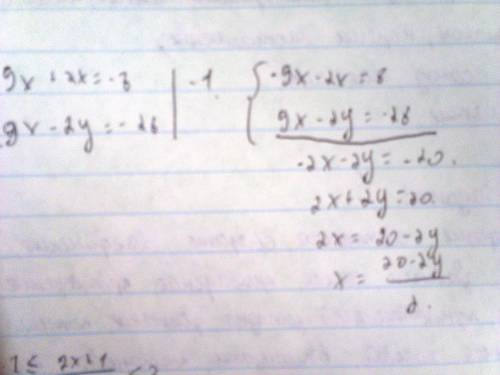 9x + 2x = -8 | -1. { -9x - 2x = 8
9x - 2y = -28 | 9x - 2y = -28
-2x - 2y = -20.
2x + 2y = 20.
2x = 20 - 2y
x = 20 - 2y
2.
1 ≤ 2x + 1